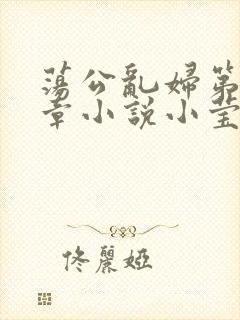 蕩公亂婦第
章小説小莹
佟麗婭